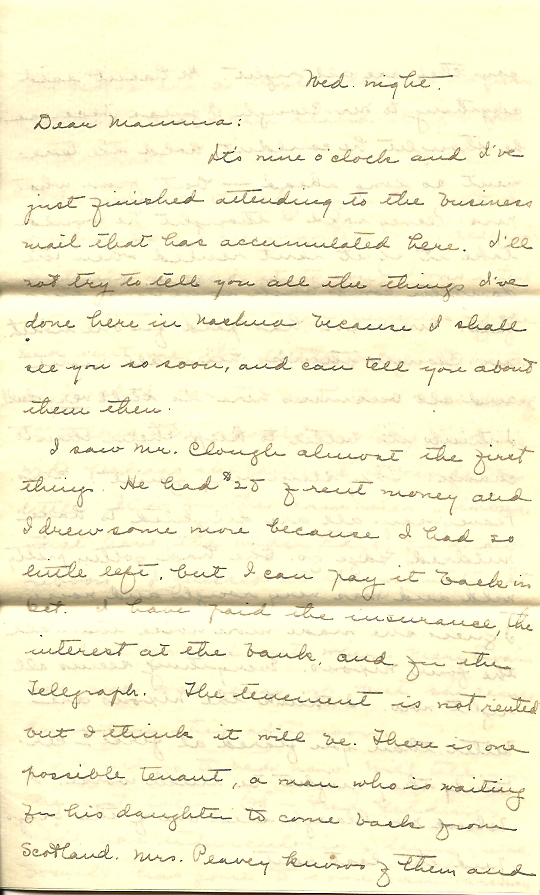 Wed. night.
Dear Mamma:
It's nine o'clock and I've
just finished attending to the business
mail that has accumulated here. I'll
not try to tell you all the things I've
done here in Nashua because I shall
see you so soon, and can tell you about
them then.
I saw Mr. Clough almost the first
thing. He had $25 of rent money and
I drew some more because I had so
little left, but I can pay it back in
Oct. I have paid the insurance, the
interest at the bank, and for the
Telegraph. The tenement is not rented
but I think it will be. There is one
possible tenant, a man who is waiting
for his daughter to come back from
Scotland. Mrs. Peavey knows of them and